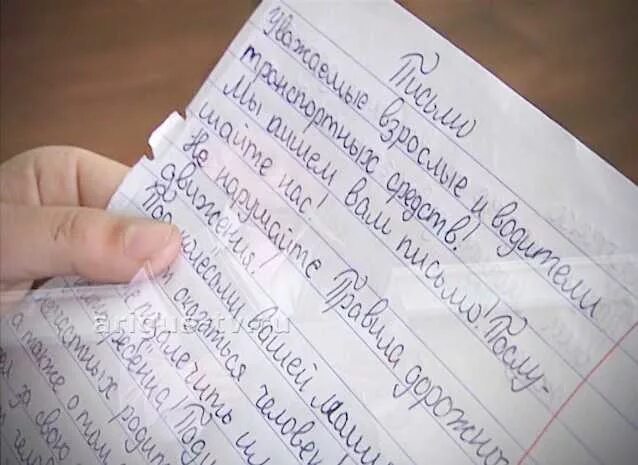 Письмо
Уважаемые взрослые и водители
транспортных средств!
Мы пишем вам письмо! Послу-
шайте нас!
Не нарушайте Правила дорожно
движения!
Под колёсами вашей маши
оказаться человек
ребёнка! Поду
а также о том
за свою